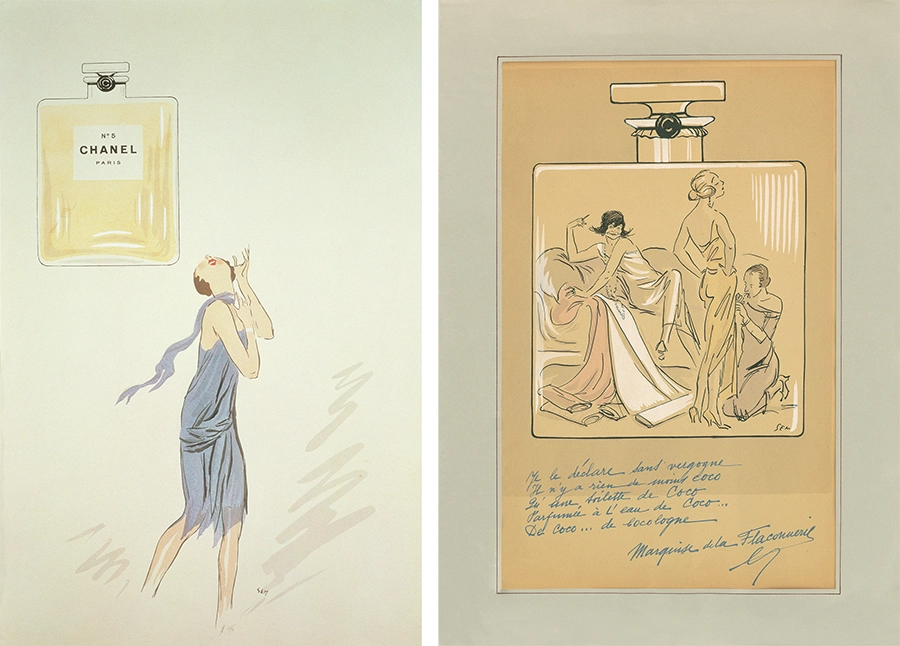 N°5
CHANEL
PARIS
SEM
SEM
Je le déclare sans vergogne
Il n'y a rien de moins coco
Qu'une toilette de Coco
Parfumée à L'eau de Coco...
De Coco... de Cocologne
Marquise de la Flaconnerie